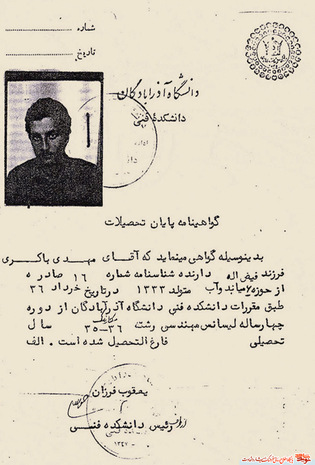 شماره
تاریخ
دانشگاه آذرابادگان
دانشکده فنی
گواهینامه پایان تحصیلات
بدینوسیله گواهی مینماید که آقای مهدی باکری
فرزند فیض اله دارنده شناسنامه شماره ۱۶ صادره
از حوزه ۶ میاندوآب متولد ۱۳۳۳ در تاریخ خرداد ۳۶
طبق مقررات دانشکده فنی دانشگاه آذرآبادگان از دوره
چهارساله لیسانس مهندسی رشته مکانیک ۳۶-۳۵ سال
تحصیلی فارغ التحصیل شده است . الف
یعقوب فرزان
رئیس دانشکده فنی